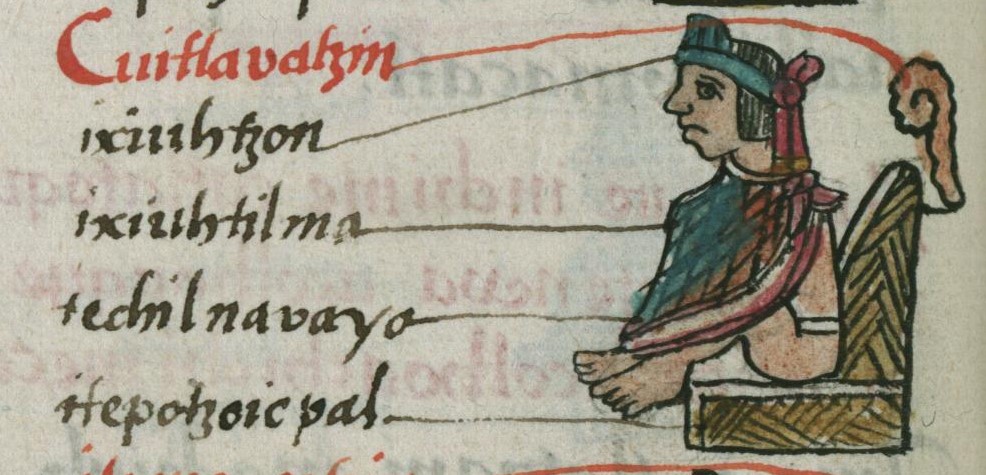 Cuitlavatzin
ixiuhtzon
ixiuhtilma
techilnavayo
itepotzoicpal